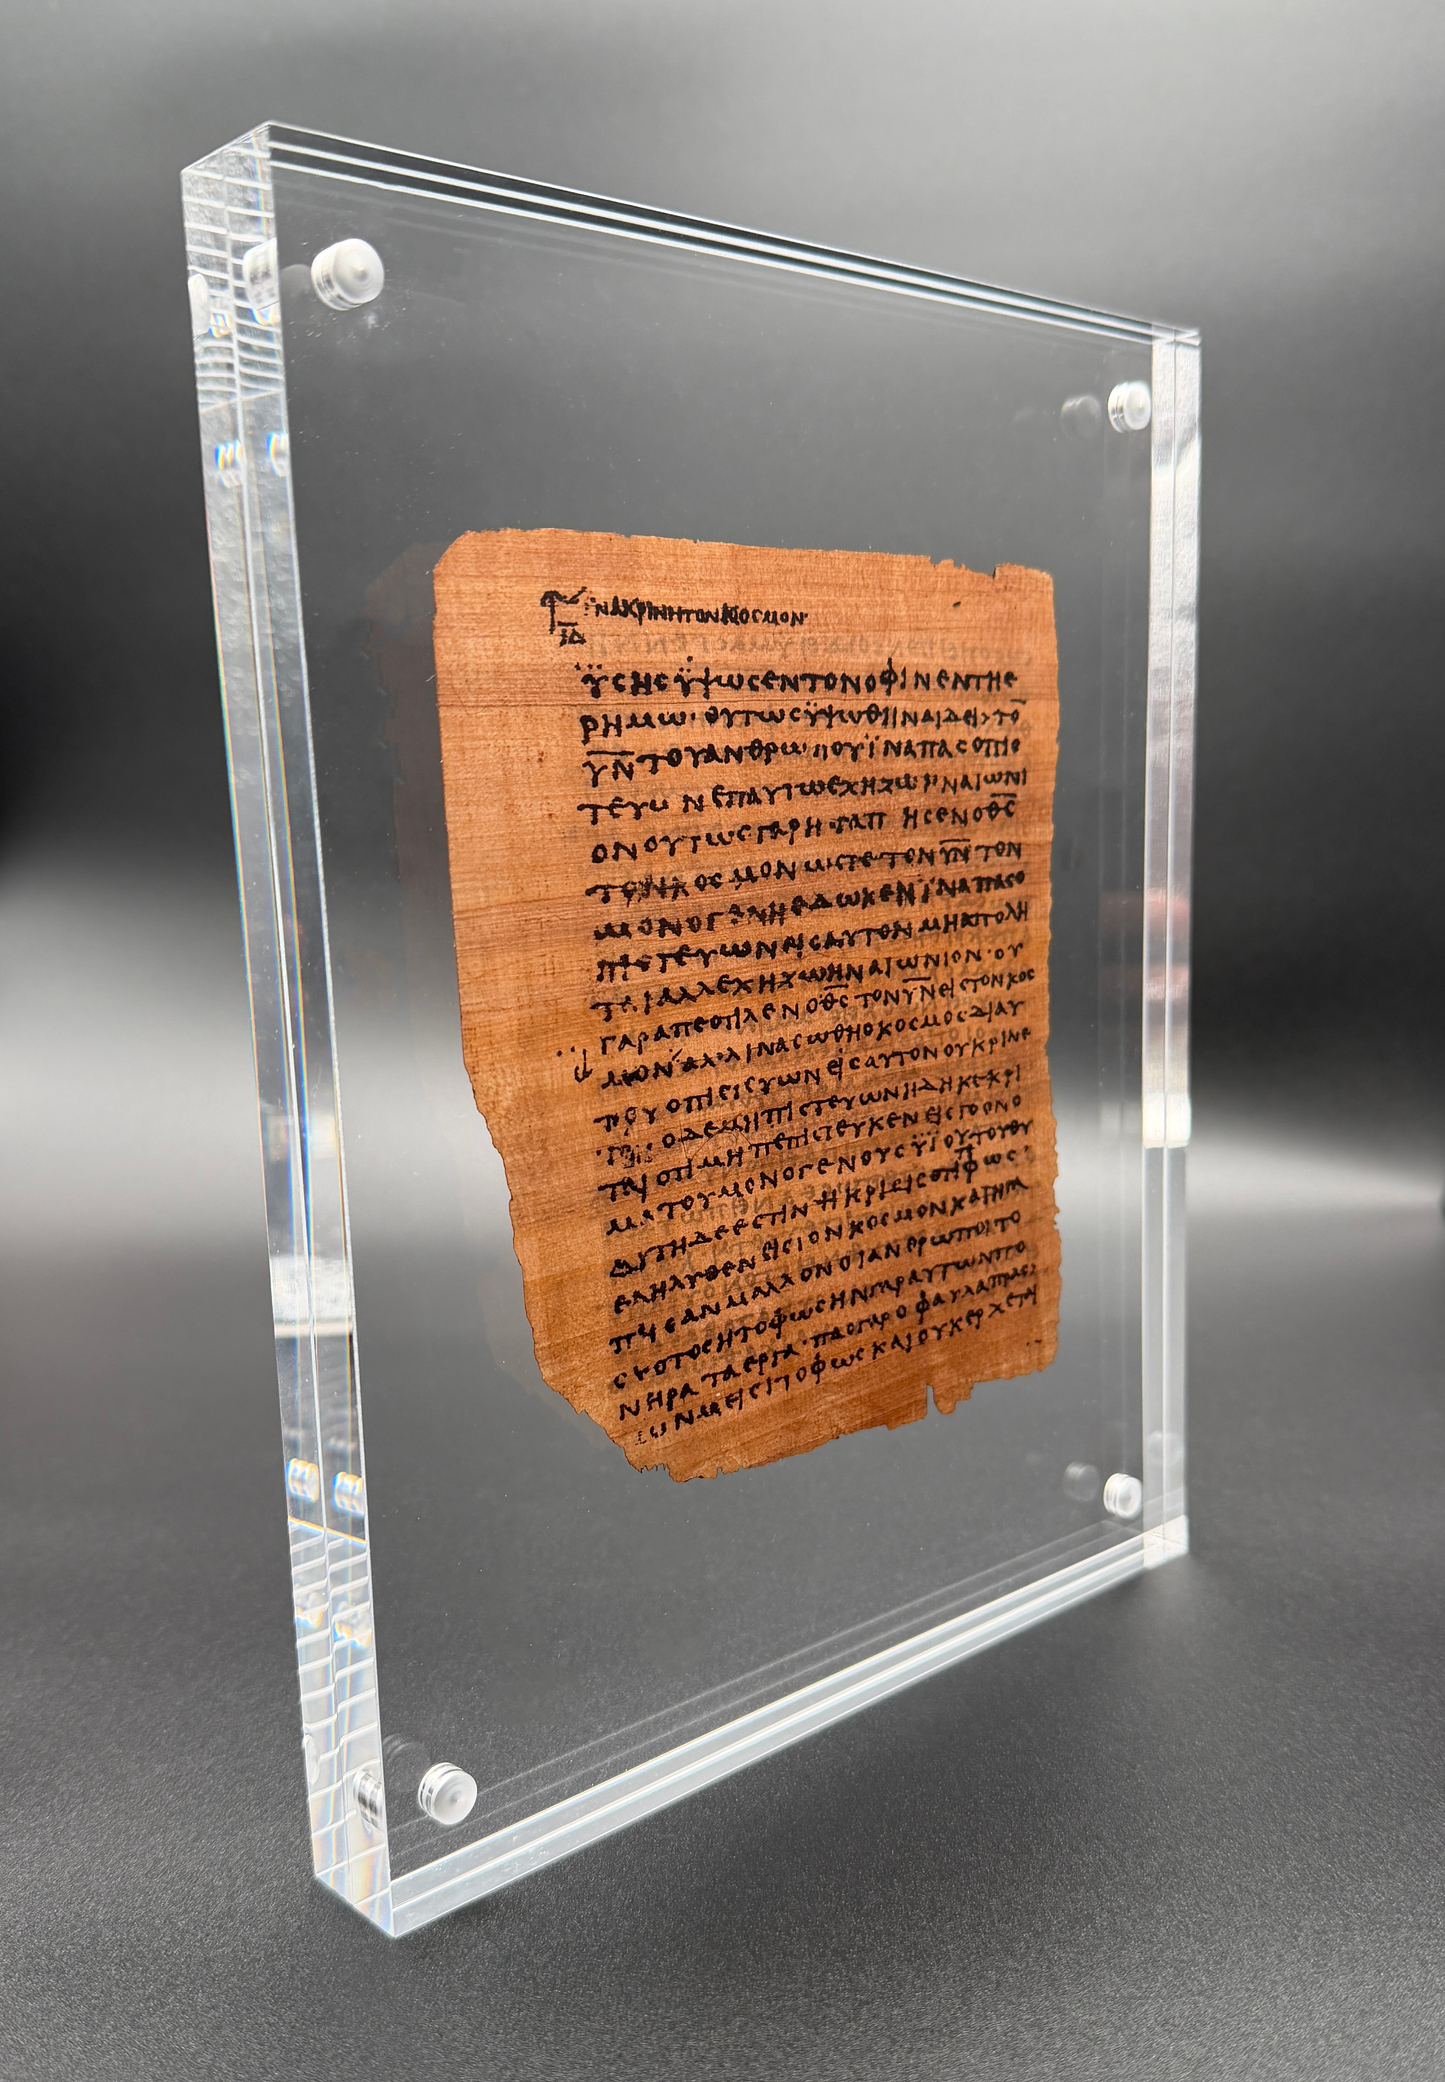 ΝΑΚΡΙΝΗΤΟΝΚΟϹΜΟΝ·
ΙΔ
ΫϹΗϹΫΨΩϹΕΝΤΟΝΟΦΙΝΕΝΤΗΕ
ΡΗΜΩ·ΟΥΤΩϹΫΨΩΘΗΝΑΙΔΕΙ>ΤΟ̅
Υ̅Ν̅ΤΟΥΑΝΘΡΩΠΟΥΪΝΑΠΑϹΟΠΙϹ
ΤΕΥΩΝΕΠΑΥΤΩΕΧΗΖΩΗΝΑΙΩΝΙ
ΟΝΟΥΤΩϹΓΑΡΗΓΑΠΗϹΕΝΟΘ̅Ϲ̅
ΤΟΝΚΟϹΜΟΝΩϹΤΕΤΟΝΥ̅Ν̅ΤΟΝ
ΜΟΝΟΓΕΝΗΕΔΩΚΕΝΪΝΑΠΑϹΟ
ΠΙϹΤΕΥΩΝΕΙϹΑΥΤΟΝΜΗΑΠΟΛΗ
ΤΑΙΑΛΛΕΧΗΖΩΗΝΑΙΩΝΙΟΝ·ΟΥ
ΓΑΡΑΠΕϹΤΙΛΕΝΟΘ̅Ϲ̅ΤΟΝΥ̅Ν̅ΕΙϹΤΟΝΚΟϹ
ΜΟΝΑΛΛΙΝΑϹΩΘΗΟΚΟϹΜΟϹΔΙΑΥ
ΤΟΥΟΠΙϹΤΕΥΩΝΕΙϹΑΥΤΟΝΟΥΚΡΙΝΕ
ΟΔΕΜΗΠΙϹΤΕΥΩΝΗΔΗΚΕΚΡΙ
ΤΑΙΟΤΙΜΗΠΕΠΙϹΤΕΥΚΕΝΕΙϹΤΟΟΝΟ
ΜΑΤΟΥΜΟΝΟΓΕΝΟΥϹΫΪΟΥΤΟΥΘΥ
ΑΥΤΗΔΕΕϹΤΙΝΗΚΡΙϹΙϹΟΤΙΤΟΦΩϹ
ΕΛΗΛΥΘΕΝΕΙϹΤΟΝΚΟϹΜΟΝΚΑΙΗΓΑ
ΠΗϹΑΝΜΑΛΛΟΝΟΙΑΝΘΡΩΠΟΙΤΟ
ϹΚΟΤΟϹΗΤΟΦΩϹΗΝΓΑΡΑΥΤΩΝΠΟ
ΝΗΡΑΤΑΕΡΓΑ·ΠΑϹΓΑΡΟΦΑΥΛΑΠΡΑϹ
ϹΩΝΜΕΙϹΕΙΤΟΦΩϹΚΑΙΟΥΚΕΡΧΕΤΑΙ